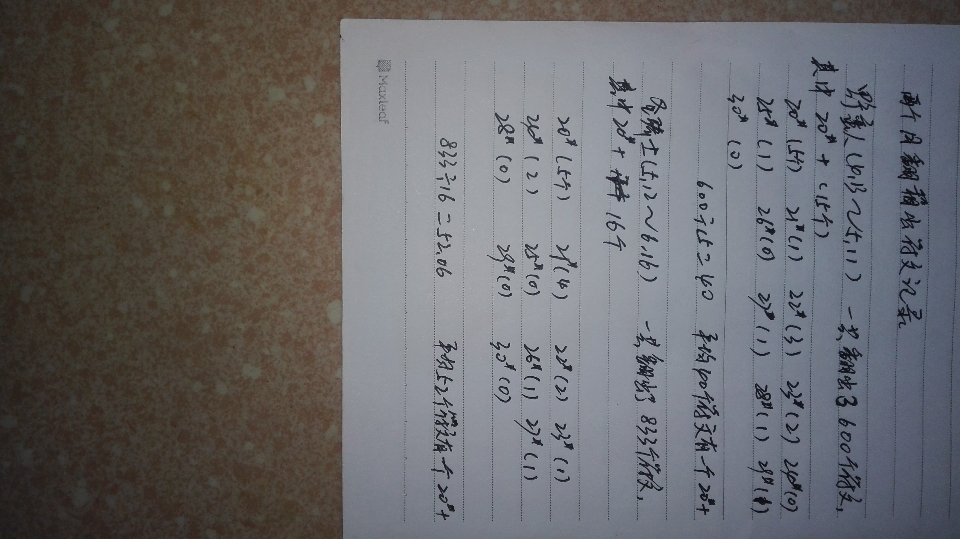 两个月翻箱出符文记录
野蛮人(4,13～5,11) 一共翻出了600个符文,
其中20#+ (15个)
20#(5个) 21#(1) 22#(3) 23#(2) 24#(0)
25#(1) 26#(0) 27#(1) 28#(1) 29#(1)
30#(0)
600÷15=40 平均40个符文有一个20#+
圣骑士(5,12～6,16) 一共翻出了833个符文,
其中20#+ 16个
20#(5个) 21#(4) 22#(2) 23#(1)
24#(2) 25#(0) 26#(1) 27#(1)
28#(0) 29#(0) 30#(0)
833÷16=52.06 平均52个符文有一个20#+
Maxleaf